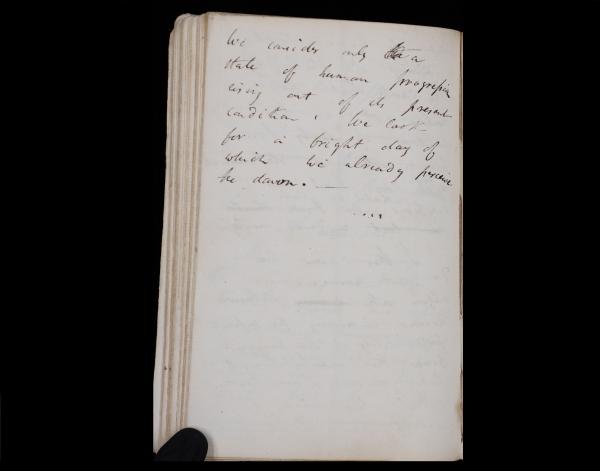 We consider only a
state of human progression
rising out of its present
condition. We look
for a bright day of
which we already perceive
the dawn. —
....